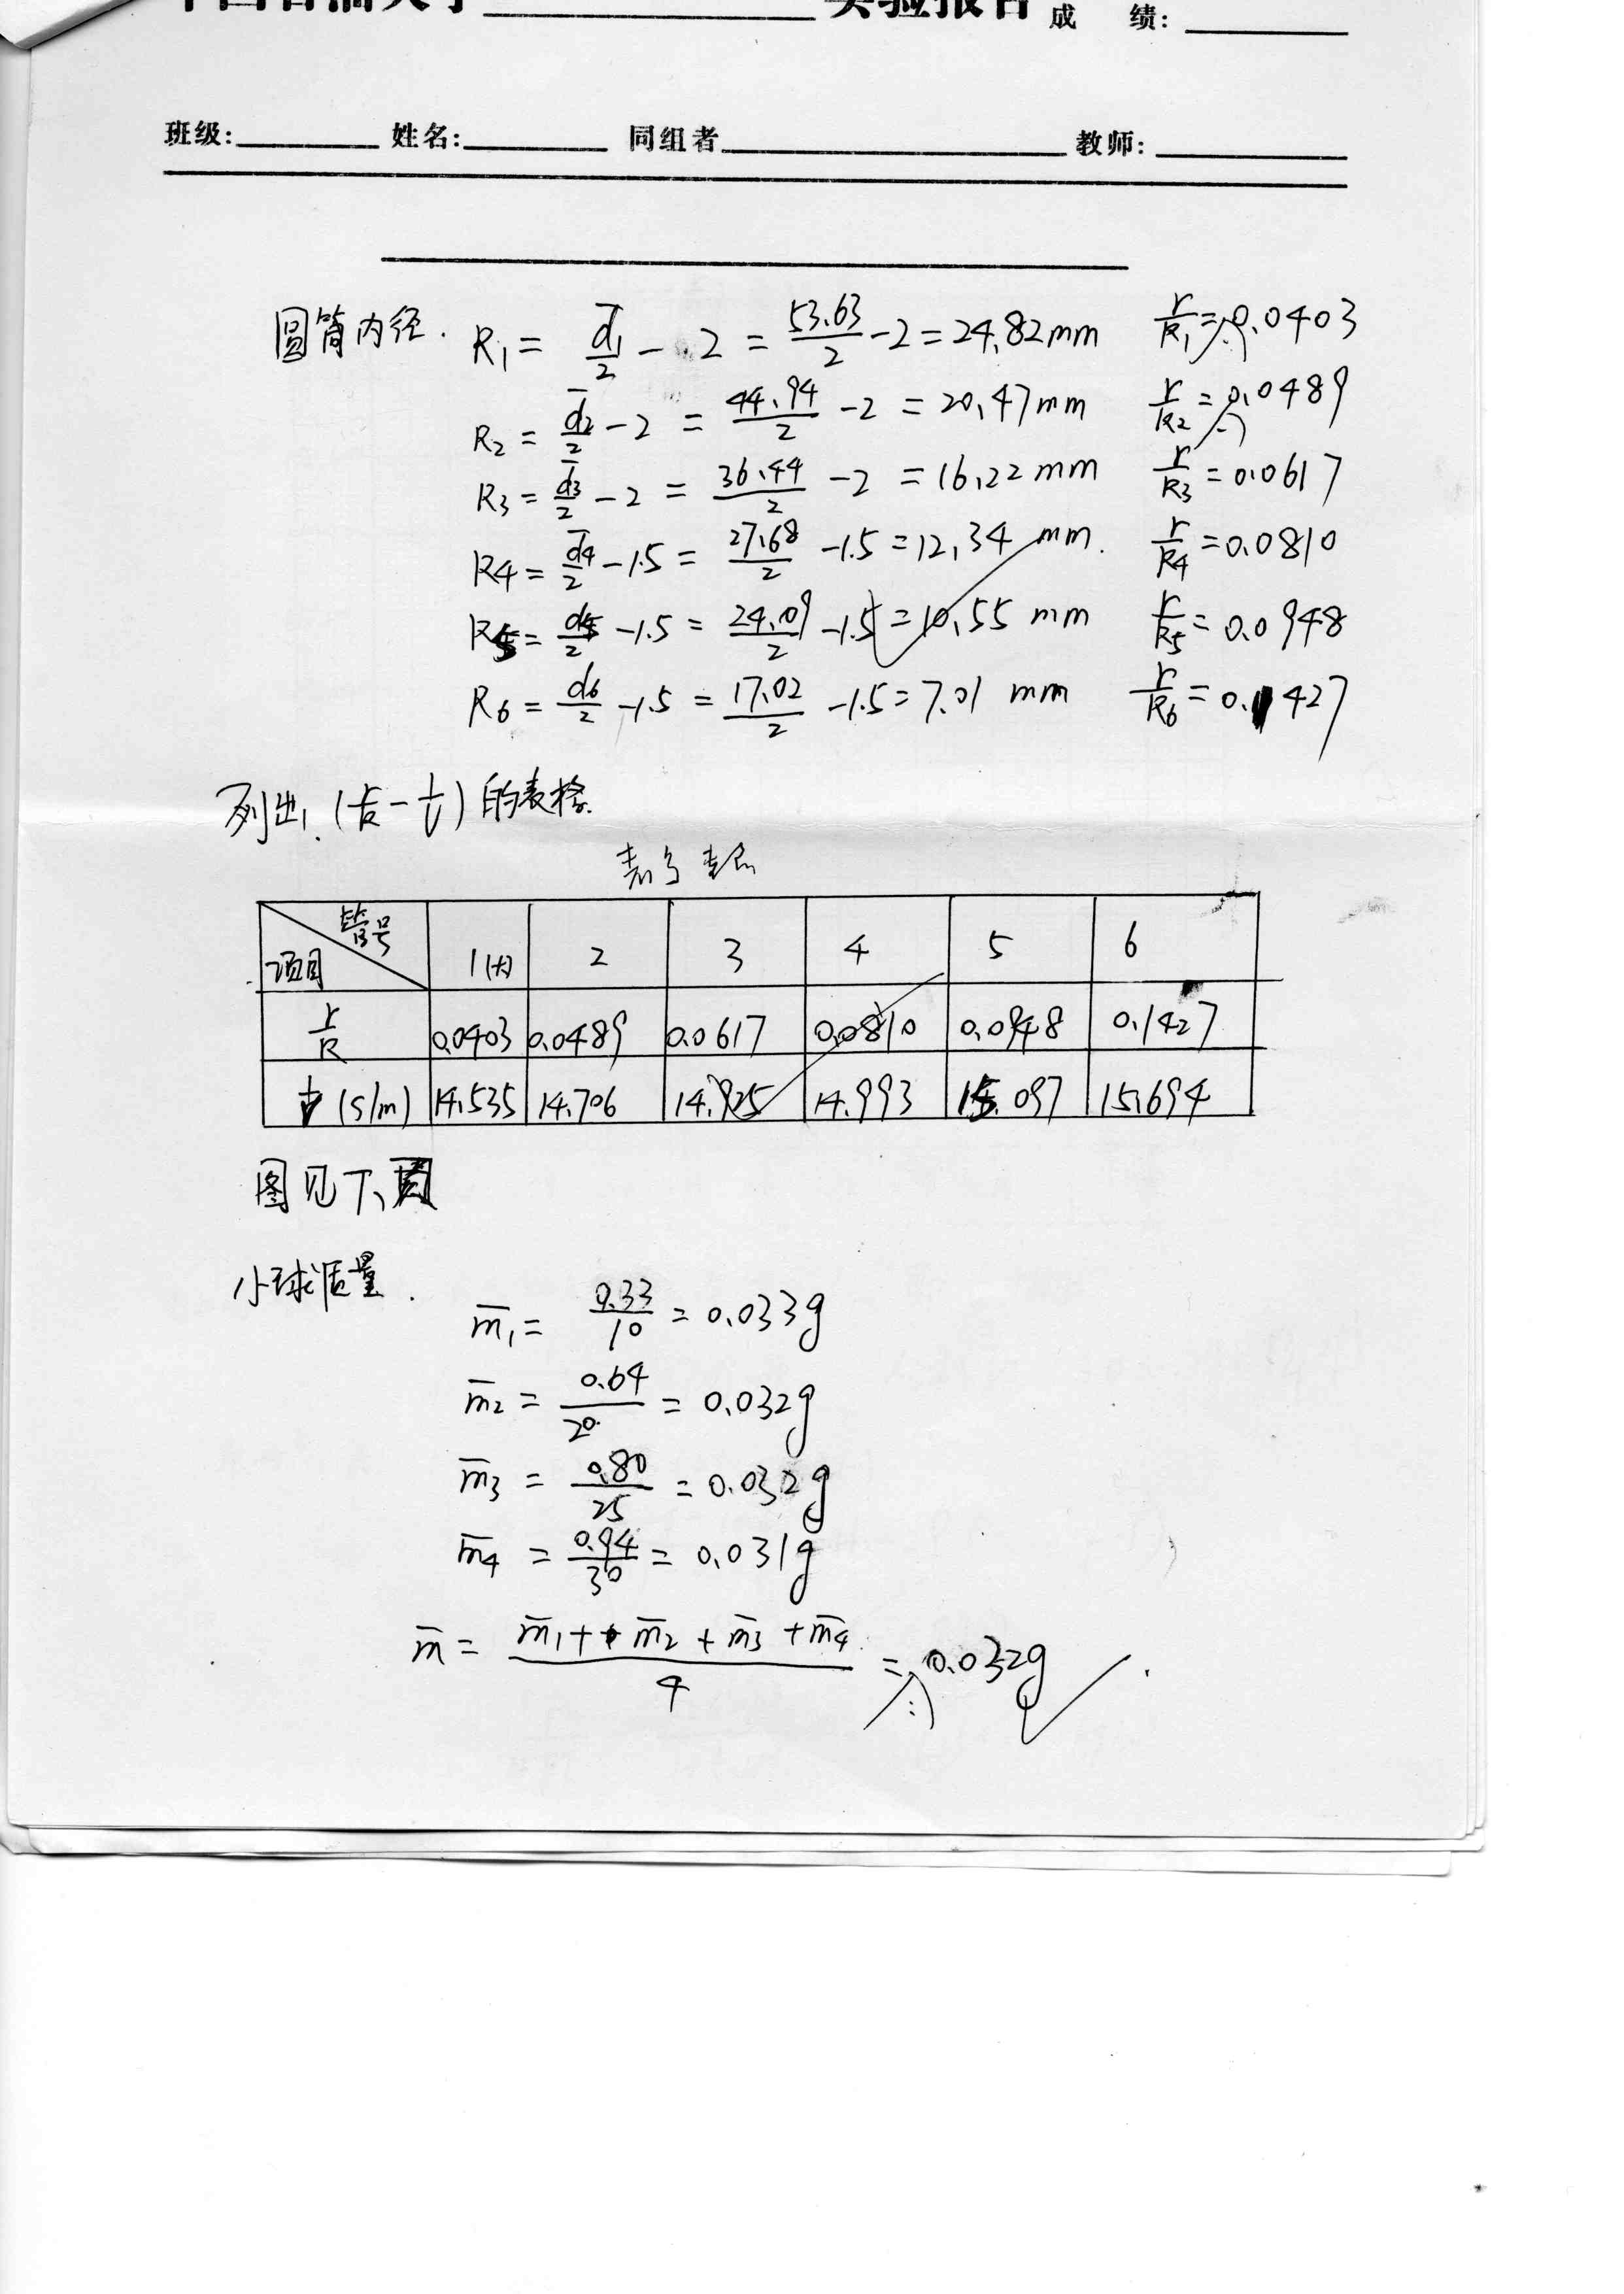 中国石油大学 实验报告 成 绩:
班级: 姓名: 同组者 教师:
圆筒内径. R₁ = d̄₁/2 - 2 = 53.63/2 - 2 = 24.82mm r/R₁ = 0.0403
R₂ = d̄₂/2 - 2 = 44.94/2 - 2 = 20.47mm r/R₂ = 0.0489
R₃ = d̄₃/2 - 2 = 36.44/2 - 2 = 16.22mm r/R₃ = 0.0617
R₄ = d̄₄/2 - 1.5 = 27.68/2 - 1.5 = 12.34 mm. r/R₄ = 0.0810
R₅ = d₅/2 - 1.5 = 24.09/2 - 1.5 = 10.55 mm r/R₅ = 0.0948
R₆ = d₆/2 - 1.5 = 17.02/2 - 1.5 = 7.01 mm r/R₆ = 0.1427
列出 (r/R - 1/v) 的表格.
管号 项目 1(大) 2 3 4 5 6
r/R 0.0403 0.0489 0.0617 0.0810 0.0948 0.1427
1/v (s/m) 14.535 14.706 14.925 14.993 15.097 15.694
图见下页
小球质量.
m̄₁ = 0.33/10 = 0.033g
m̄₂ = 0.64/20 = 0.032g
m̄₃ = 0.80/25 = 0.032g
m̄₄ = 0.94/30 = 0.031g
m̄ = (m̄₁ + m̄₂ + m̄₃ + m̄₄)/4 = 0.032g